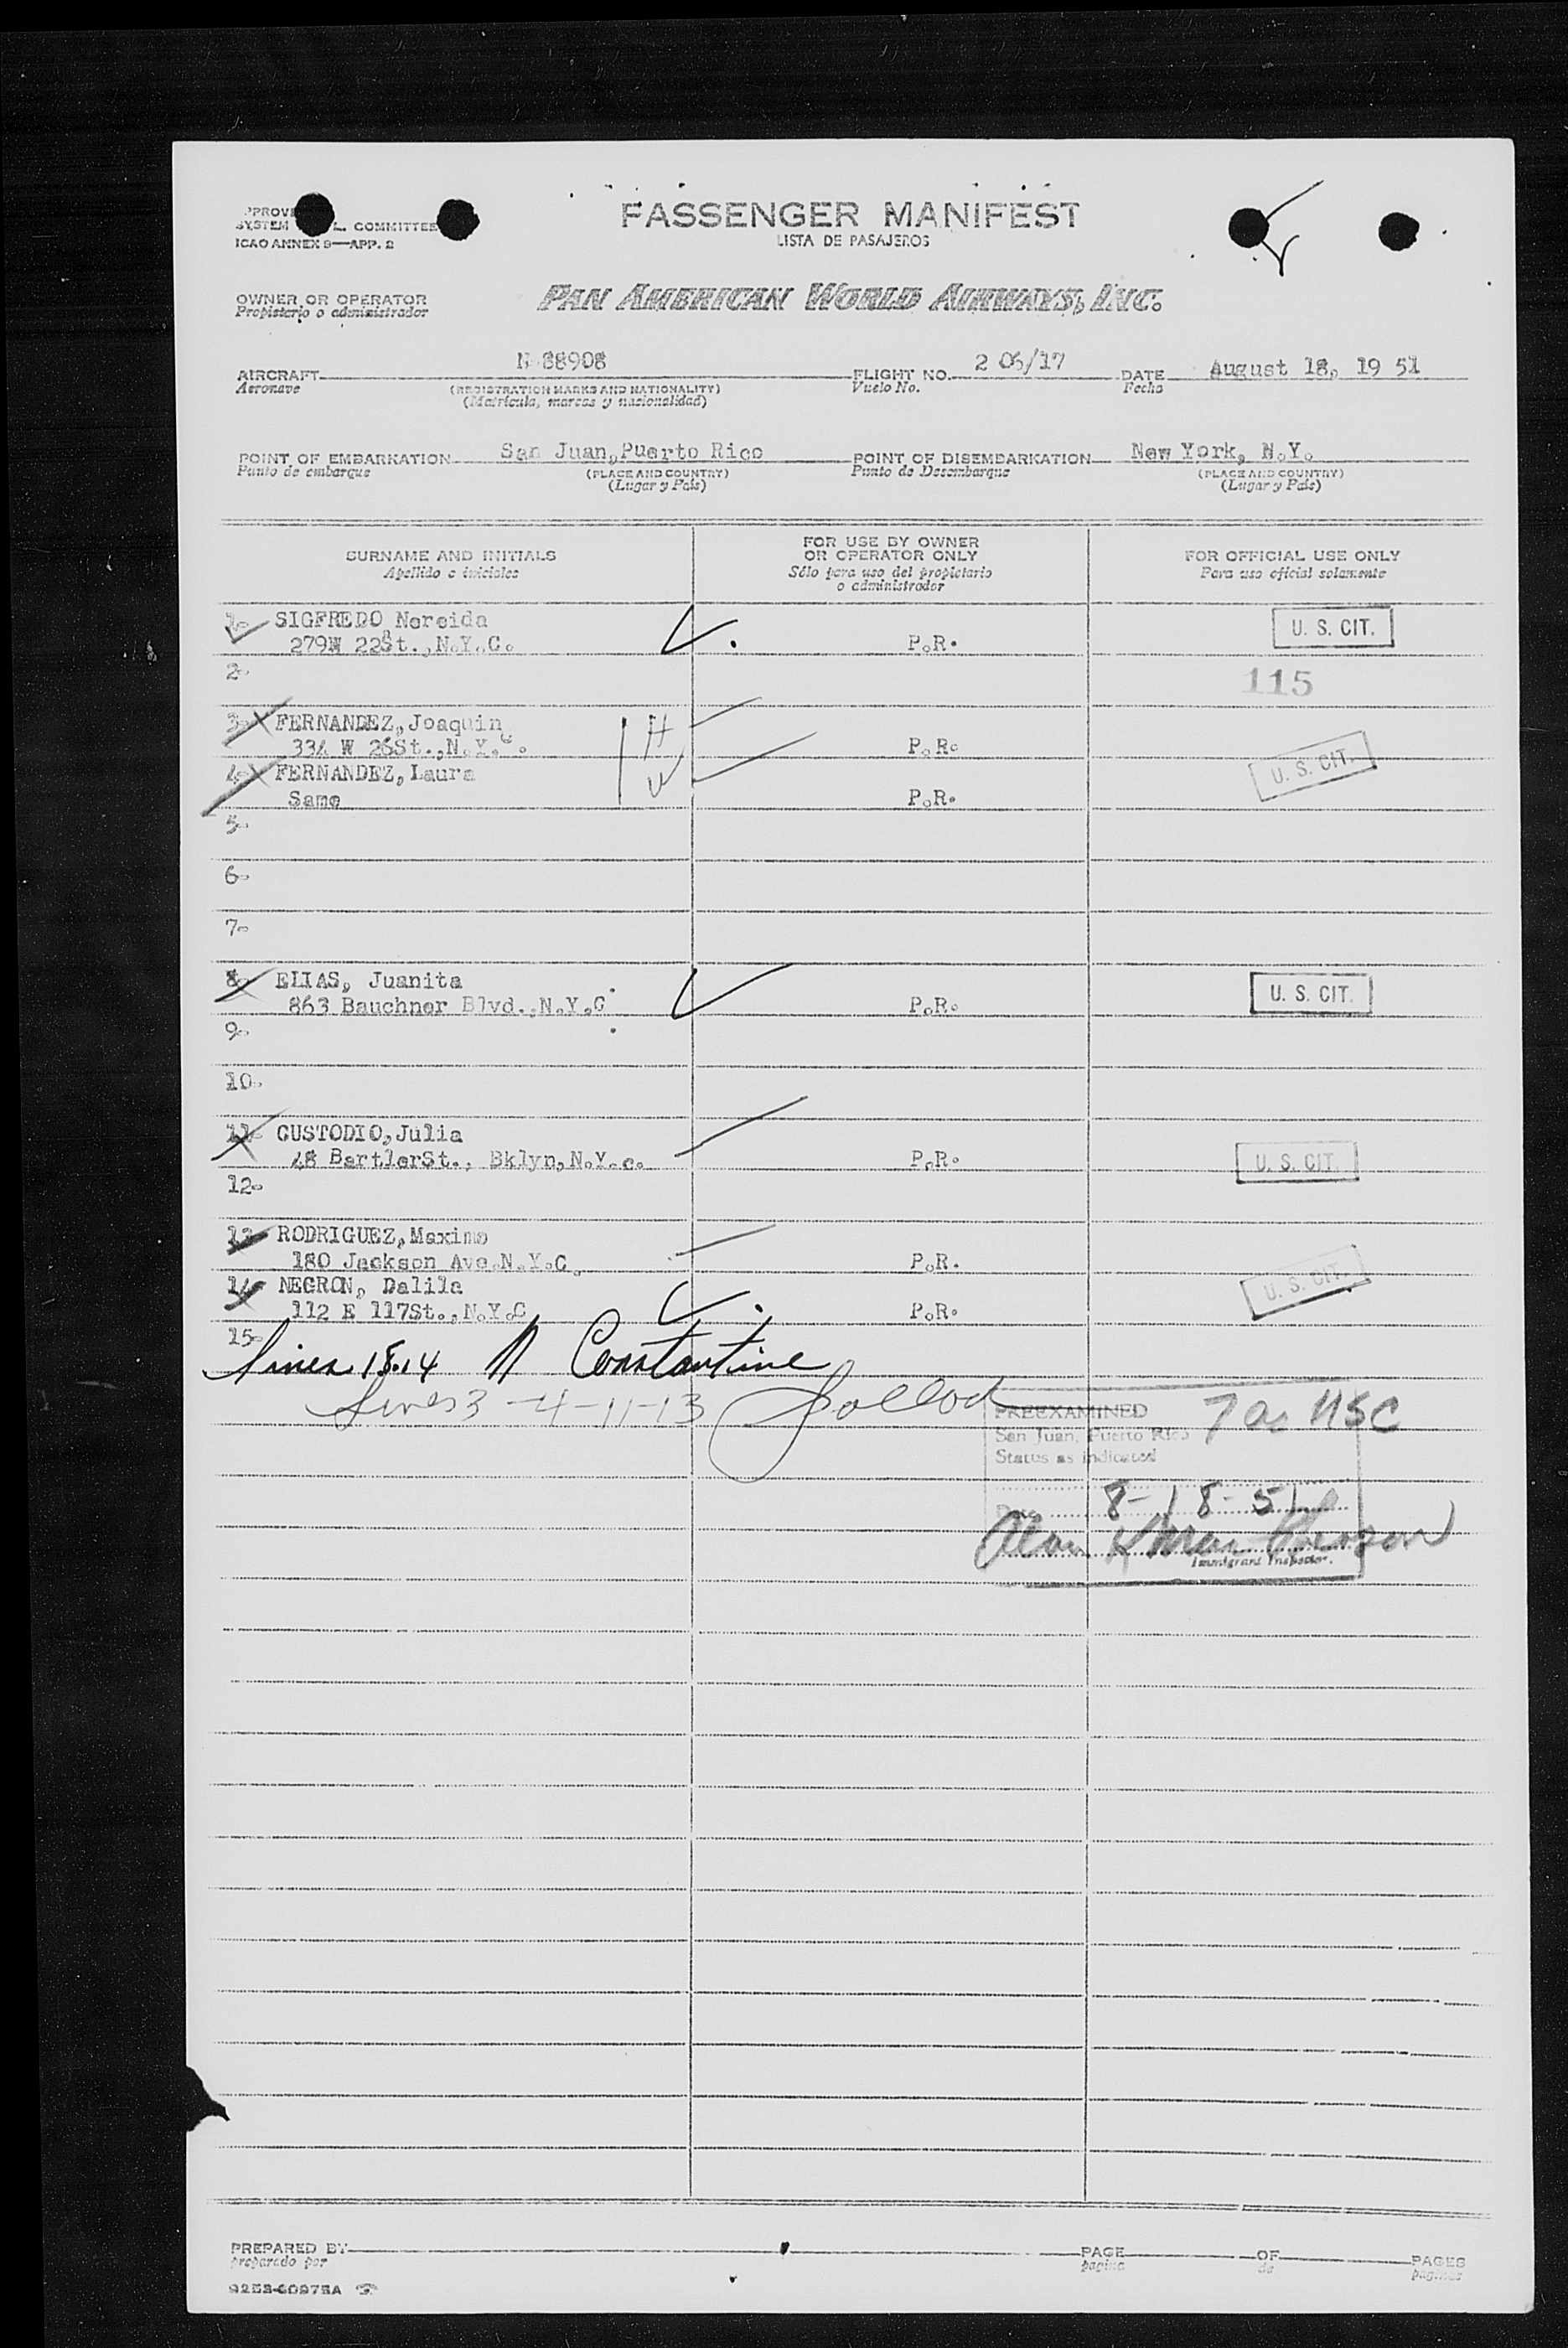 PASSENGER MANIFEST
LISTA DE PASAJEROS
SYSTEM L. COMMITTEE
ICAO ANNEX 9—APP. 2
OWNER OR OPERATOR
Propietario o administrador
PAN AMERICAN WORLD AIRWAYS, INC.
AIRCRAFT N 88908 FLIGHT NO. 2 06/17 DATE August 18, 19 51
Aeronave (REGISTRATION MARKS AND NATIONALITY) Vuelo No. Fecha
(Matrícula, marcas y nacionalidad)
POINT OF EMBARKATION San Juan, Puerto Rico POINT OF DISEMBARKATION New York, N.Y.
Punto de embarque (PLACE AND COUNTRY) Punto de Desembarque (PLACE AND COUNTRY)
(Lugar y País) (Lugar y País)
SURNAME AND INITIALS FOR USE BY OWNER OR OPERATOR ONLY FOR OFFICIAL USE ONLY
Apellido e iniciales Sólo para uso del propietario o administrador Para uso oficial solamente
1. SIGFREDO Nereida U. S. CIT.
279W 22St., N.Y.C. P.R.
2. 115
3. FERNANDEZ, Joaquin H
334 W 26St., N.Y.C. P.R.
4. FERNANDEZ, Laura W U. S. CIT.
Same P.R.
5.
6.
7.
8. ELIAS, Juanita U. S. CIT.
863 Bauchner Blvd., N.Y.C. P.R.
9.
10.
11. CUSTODIO, Julia
48 BartlerSt., Bklyn, N.Y.c. P.R. U. S. CIT.
12.
13. RODRIGUEZ, Maximo
180 Jackson Ave. N.Y.C. P.R.
14. NEGRON, Dalila U. S. CIT.
112 E 117St., N.Y.C P.R.
15.
Lines 1 8.14 N Constantine
Lines 3 - 4 - 11 - 13
PREEXAMINED 7 as USC
San Juan, Puerto Rico
Status as indicated
Date 8-18-51
Immigrant Inspector.
PREPARED BY PAGE OF PAGES
preparado por página de páginas